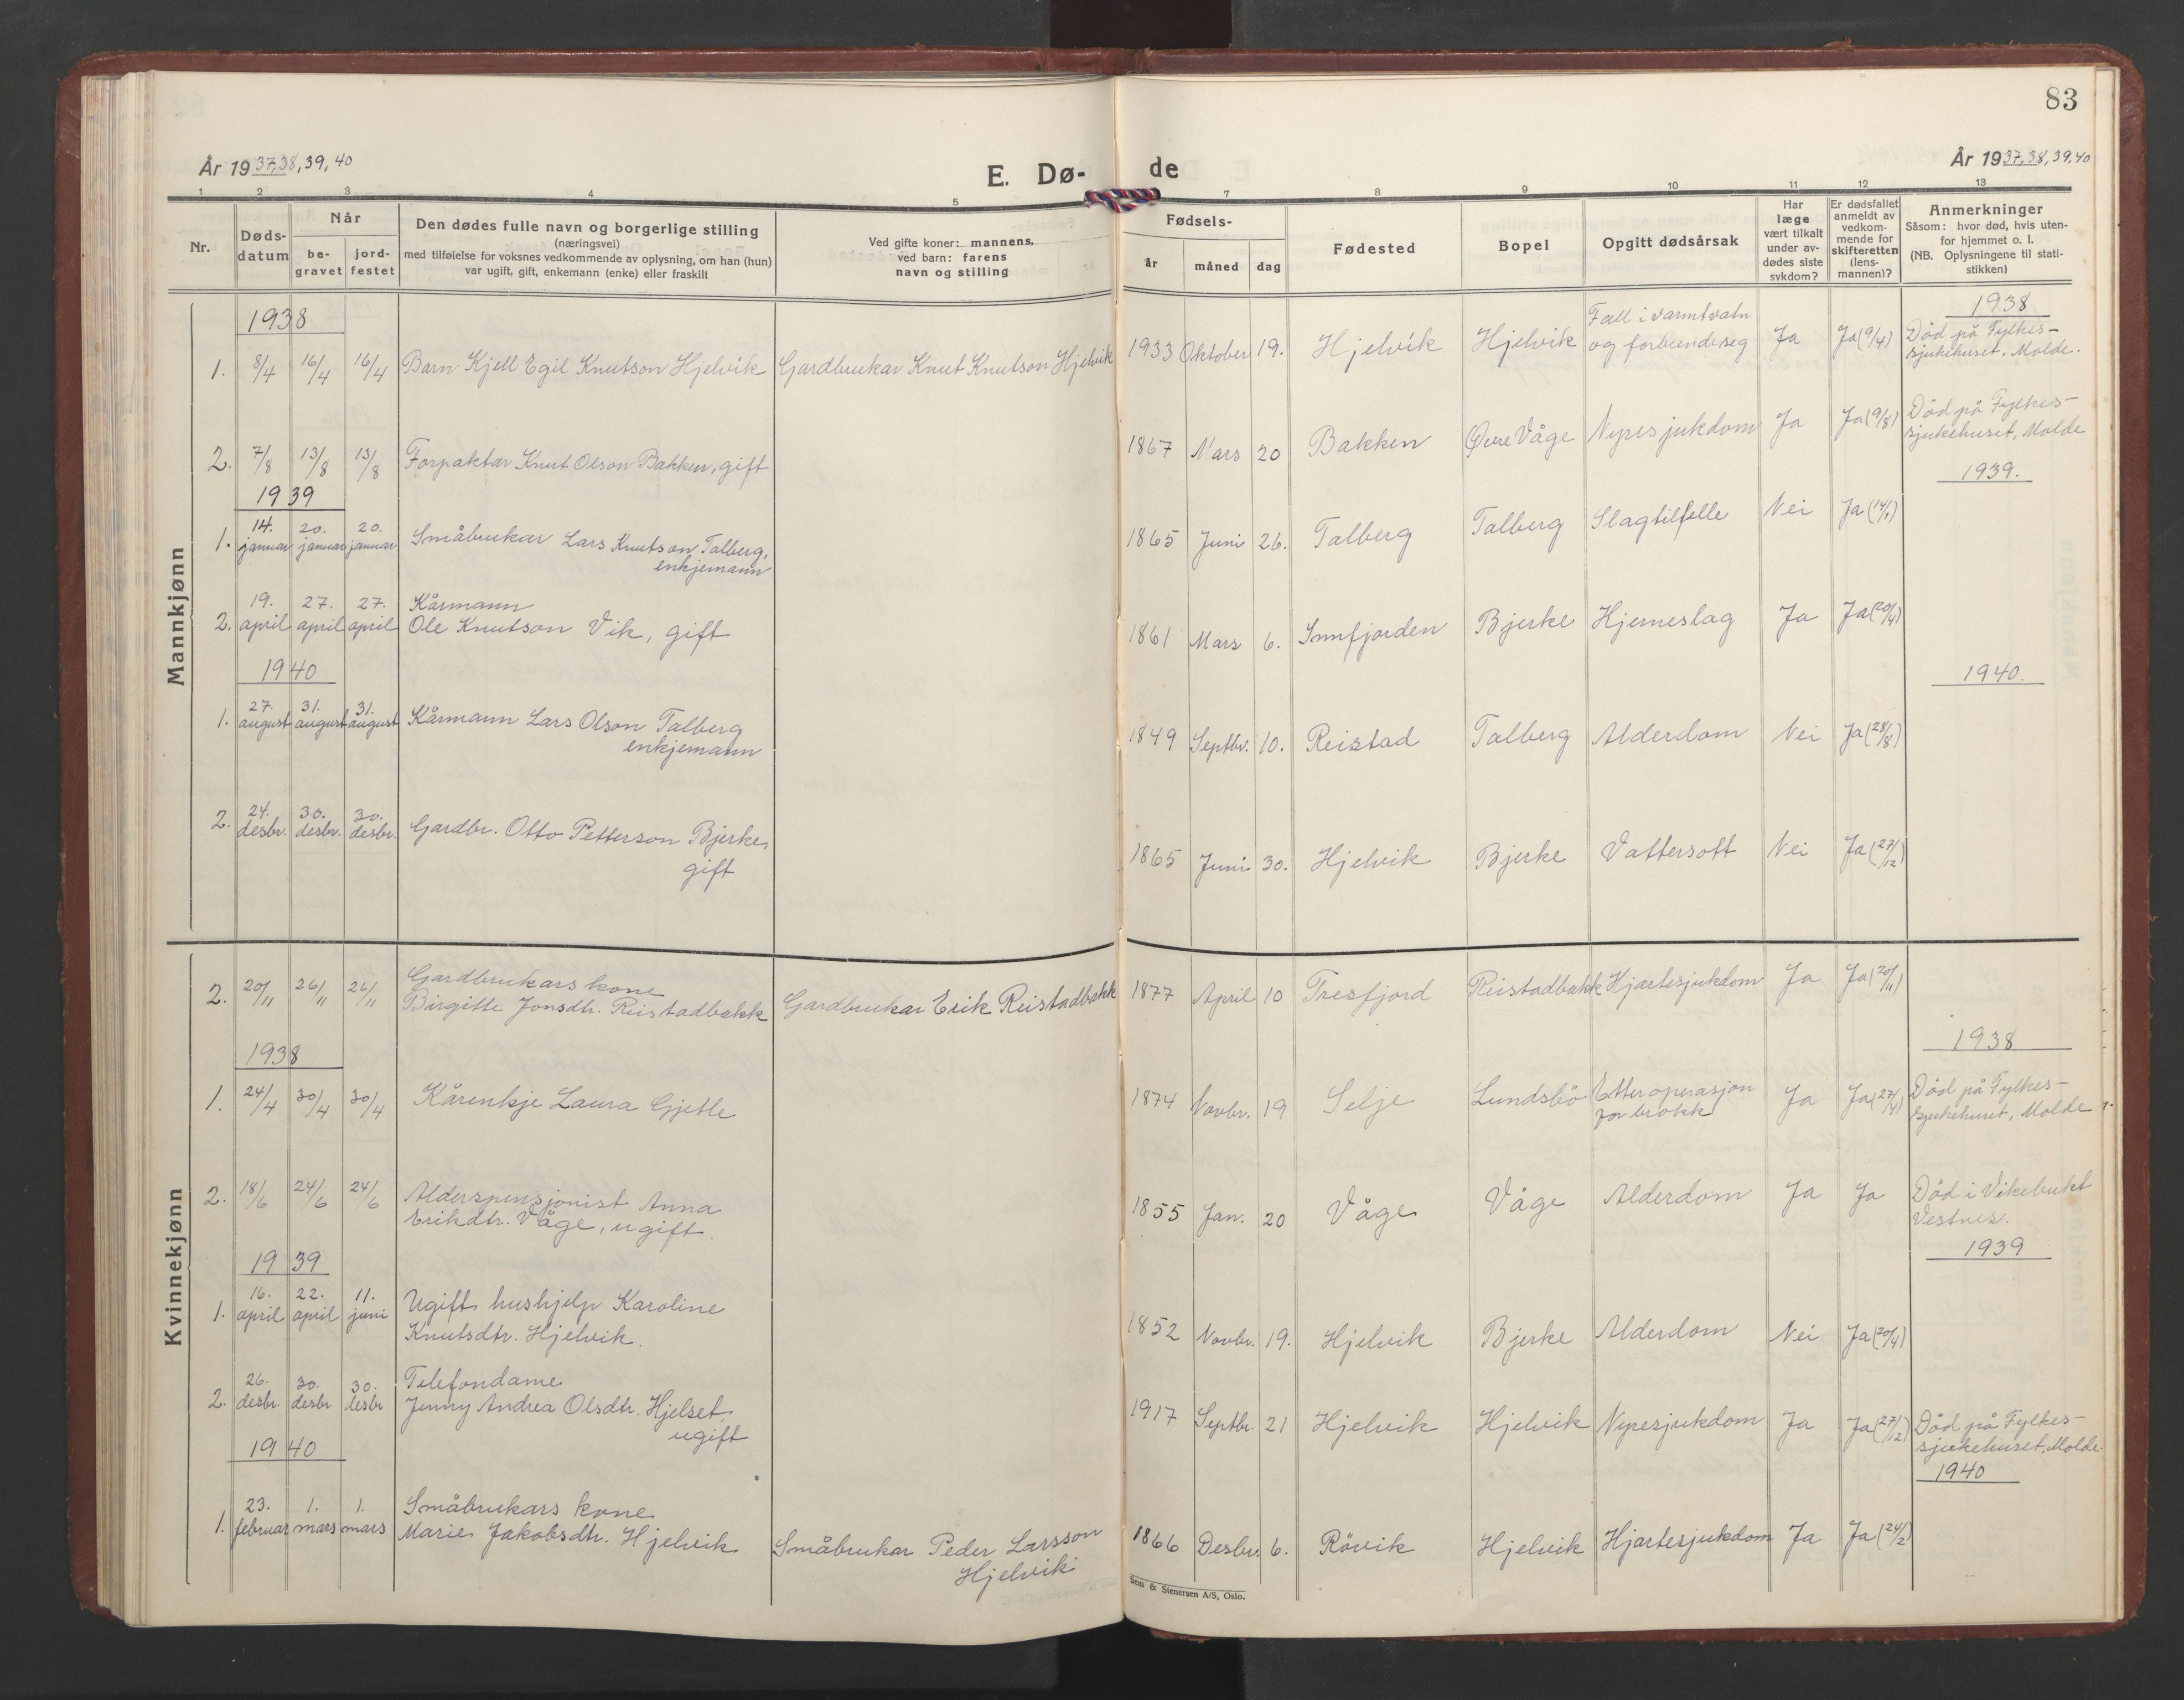 83
År 19 37,38, 39, 40
E. Dø-
de
År 19 37, 38, 39, 40
1 2 3 4 5 7 8 9 10 11 12 13
Nr.
Døds-
datum
Når
be-
gravet
jord-
festet
Den dødes fulle navn og borgerlige stilling
(næringsvei)
med tilføielse for voksnes vedkommende av oplysning, om han (hun)
var ugift, gift, enkemann (enke) eller fraskilt
Ved gifte koner: mannens,
ved barn: farens
navn og stilling
Fødsels-
år måned dag
Fødested
Bopel
Opgitt dødsårsak
Har
læge
vært tilkalt
under av-
dødes siste
sykdom?
Er dødsfallet
anmeldt av
vedkom-
mende for
skifteretten
(lens-
mannen)?
Anmerkninger
Såsom: hvor død, hvis uten-
for hjemmet o. l.
(NB. Oplysningene til stati-
stikken)
Mannkjønn
1938
1938
1. 8/4 16/4 16/4 Barn Kjell Egil Knutson Hjelvik Gardbrukar Knut Knutson Hjelvik 1933 Oktober 19. Hjelvik Hjelvik Fall i varmt vatn
og forbrende seg Ja Ja (9/4) Död på Fylkes-
sjukehuset, Molde.
2. 7/8 13/8 13/8 Forpaktar Knut Olson Bakken, gift 1867 Mars 20 Bakken Øvre Våge Nyresjukdom Ja Ja (9/8) Död på Fylkes-
sjukehuset, Molde
1939
1939.
1. 14. januar 20. januar 20. januar Småbrukar Lars Knutson Talberg,
enkjemann 1865 Juni 26. Talberg Talberg Slagtilfelle Nei Ja (14/1)
2. 19. april 27. april 27. april Kårmann
Ole Knutson Vik, gift 1861 Mars 6. Innfjorden Bjerke Hjerneslag Ja Ja (20/4)
1940
1940.
1. 27. august 31. august 31. august Kårmann Lars Olson Talberg
enkjemann 1849 Septbr. 10. Reistad Talberg Alderdom Nei Ja (28/8)
2. 24. desbr. 30. desbr. 30. desbr. Gardbr. Otto Petterson Bjerke,
gift 1865 Juni 30. Hjelvik Bjerke Vattersott Nei Ja (27/12)
Kvinnekjønn
2. 20/11 26/11 26/11 Gardbrukars kone
Birgitte Jonsdtr. Reistadbakk Gardbrukar Erik Reistadbakk 1877 April 10 Tresfjord Reistadbakk Hjartesjukdom Ja Ja (20/11)
1938
1938
1. 24/4 30/4 30/4 Kårenkje Laura Gjetle 1874 Novbr. 19 Selje Lundsbö Etter operasjon
for brokk Ja Ja (27/4) Död på Fylkes-
sjukehuset, Molde
2. 18/6 24/6 24/6 Alderspensjonist Anna
Erikdtr. Våge, ugift. 1855 Jan. 20 Våge Våge Alderdom Ja Ja Död i Vikebukt
Vestnes.
1939
1939
1. 16. april 22. april 11. juni Ugift hushjelp Karoline
Knutsdtr. Hjelvik. 1852 Novbr. 19. Hjelvik Bjerke Alderdom Nei Ja (20/4)
2. 26. desbr. 30. desbr 30. desbr Telefondame
Jenny Andrea Olsdtr. Hjelset,
ugift 1917 Septbr. 21 Hjelvik Hjelvik Nyresjukdom Ja Ja (27/12) Död på Fylkes-
sjukehuset, Molde.
1940
1940
1. 23. februar 1. mars 1. mars Småbrukars kone
Marie Jakobsdtr. Hjelvik Småbrukar Peder Larsson
Hjelvik 1866 Desbr. 6. Rövik Hjelvik Hjartesjukdom Ja Ja (24/2)
Sem & Stenersen A/S, Oslo.